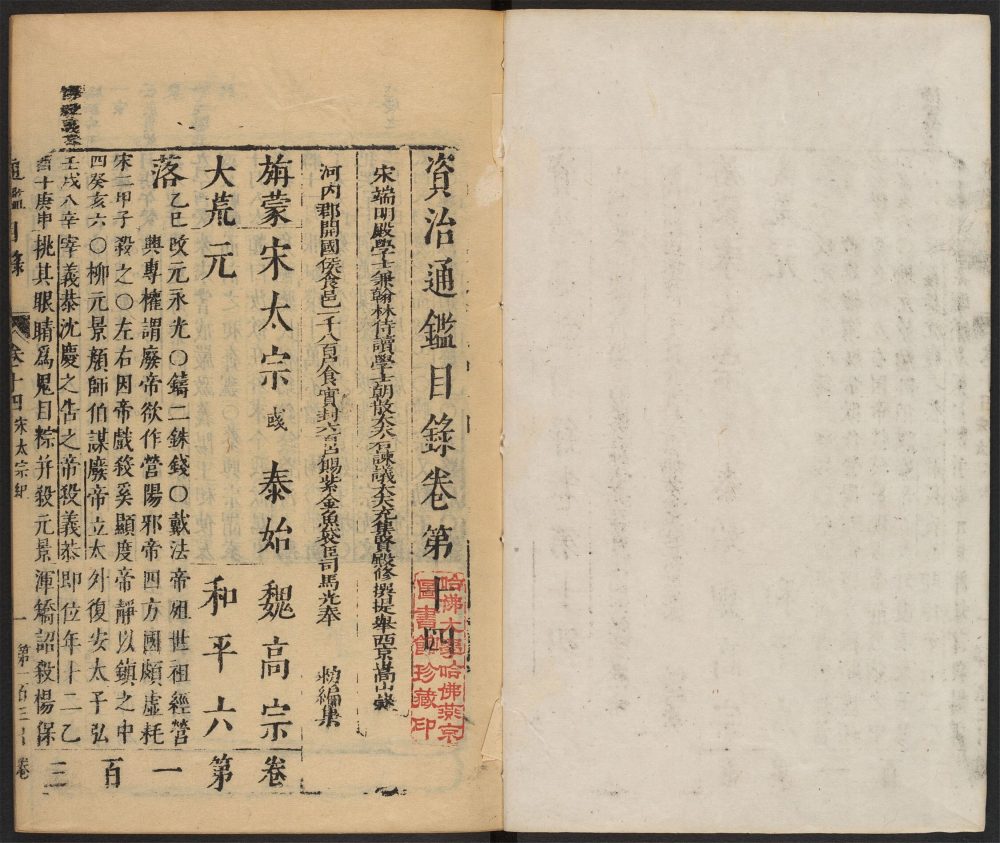 資治通鑑目錄卷第十四
哈佛大學哈佛燕京
圖書館珍藏印
宋端明殿學士兼翰林侍讀學士朝散大夫右諫議大夫充集賢殿修撰提舉西京嵩山
河内郡開國侯食邑一千八百戶食實封六百戶賜紫金魚袋臣司馬光奉 敕編集
旃蒙宋太宗彧泰始 魏高宗 卷
大荒元 和平六 第
落 一
乙巳改元永光〇鑄二銖錢〇戴法帝殂世祖經營
興專權謂廢帝欲作營陽邪帝四方國頗虛耗
宋二甲子殺之〇左右因帝戲殺奚顯度帝靜以鎮之中 百
四癸亥六〇柳元景顏師伯謀廢帝立太外復安太子弘
壬戌八辛宰義恭沈慶之告之帝殺義恭即位年十二乙 三
酉十庚申挑其眼睛爲鬼目粽并殺元景渾矯詔殺楊保
通鑑目錄 卷十四 宋太宗紀 一 第一百三 卷